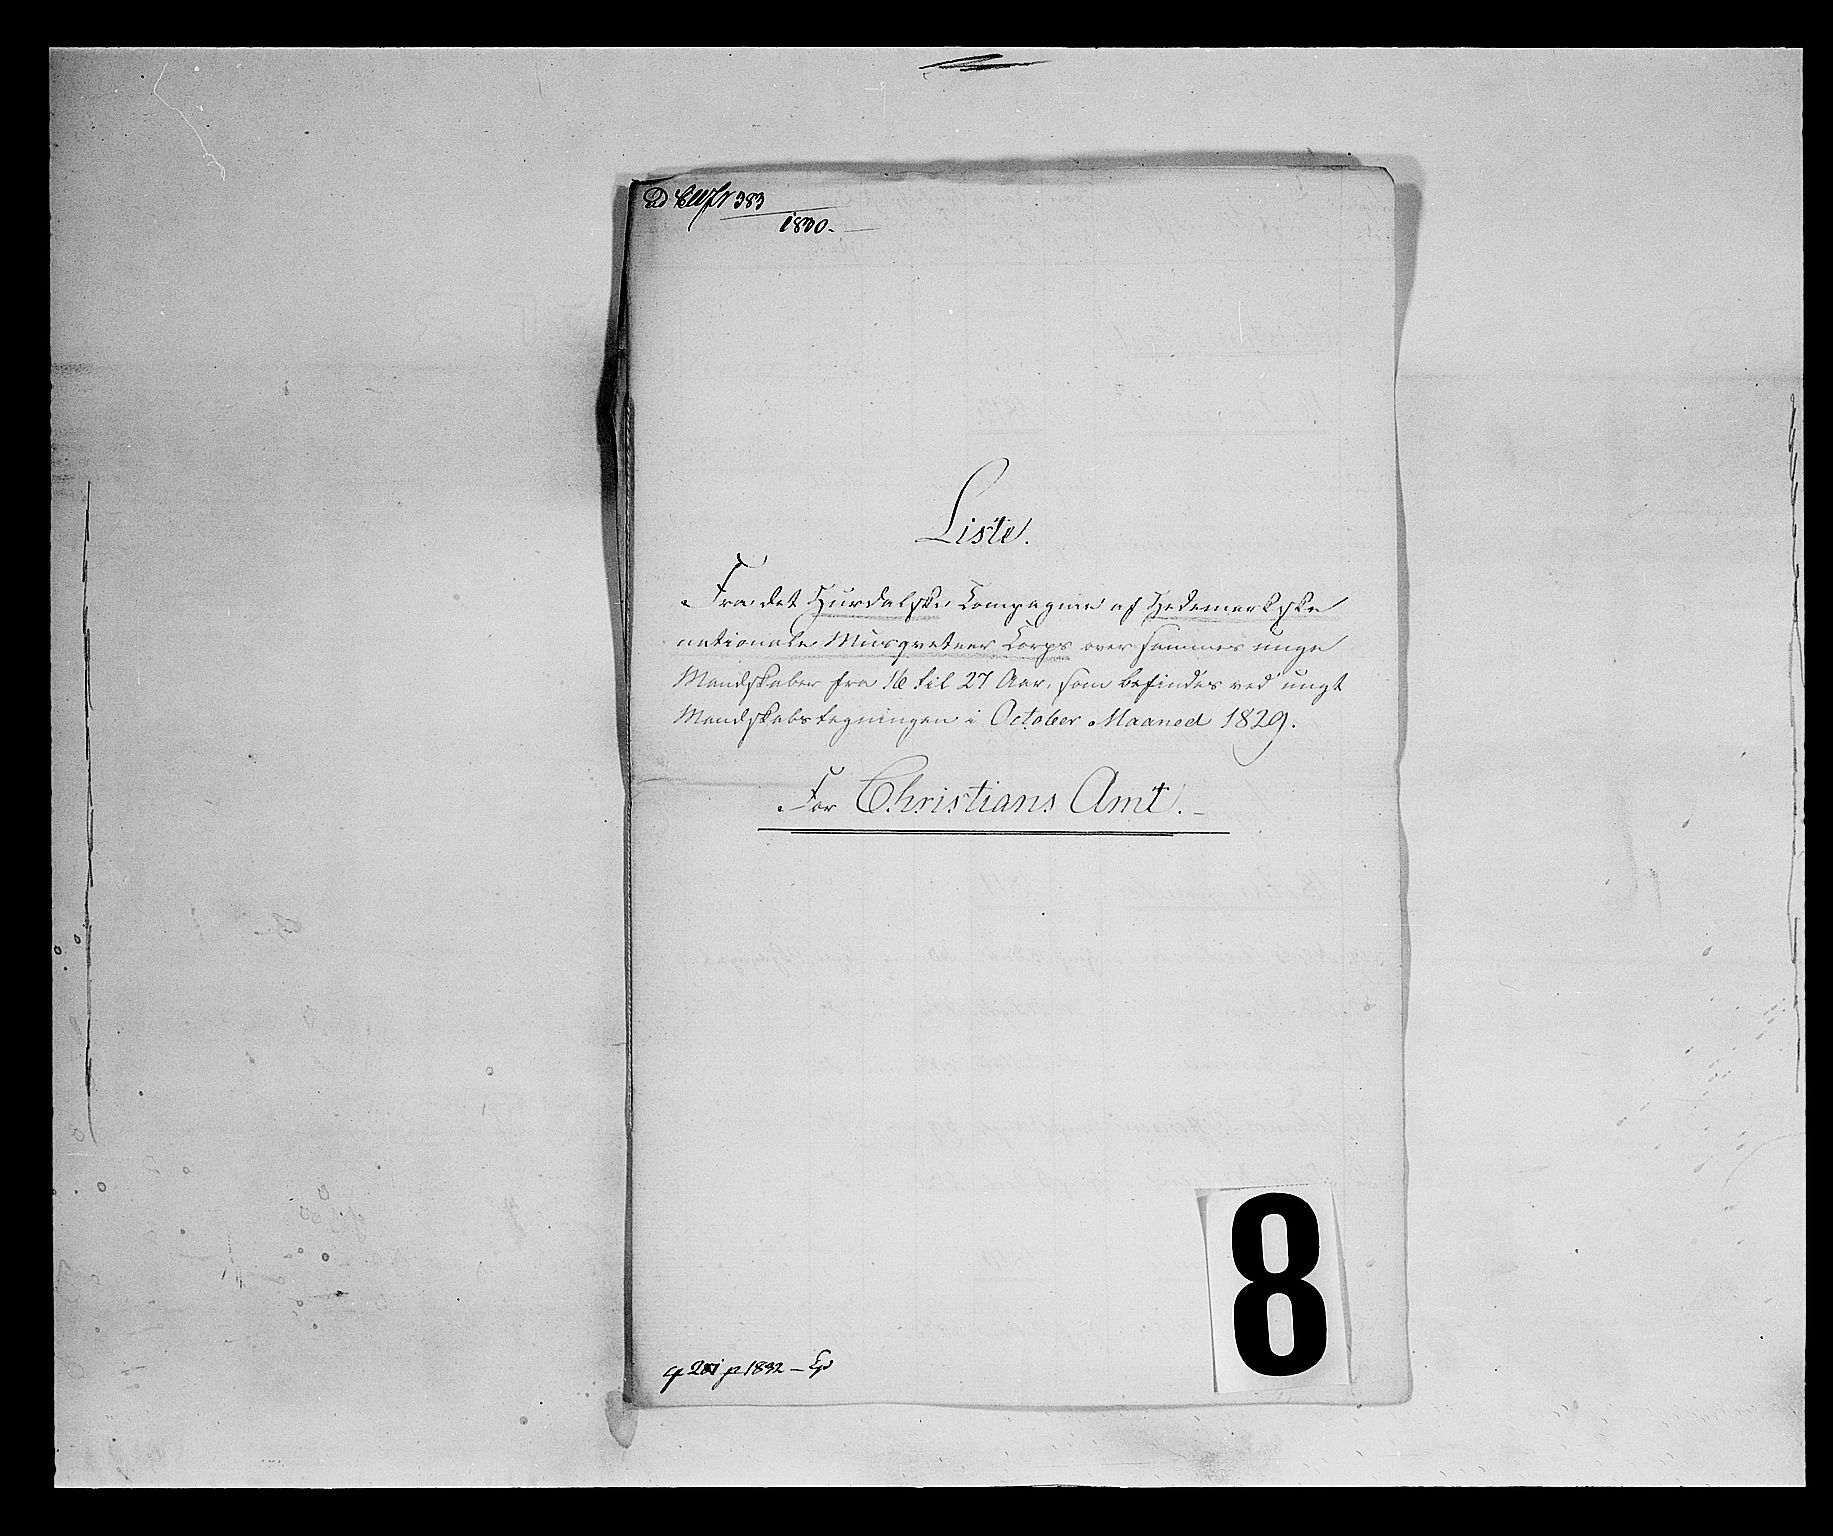 383
1830.
Liste.
Fra det Hurdalske Compagnie af Hedemarkske
nationale Musqveteer Corps over sammes unge
Mandskaber fra 16 til 27 Aar, som befindes ved ungt
Mandskabstegningen i October Maaned 1829.
For Christians Amt.
1832
8